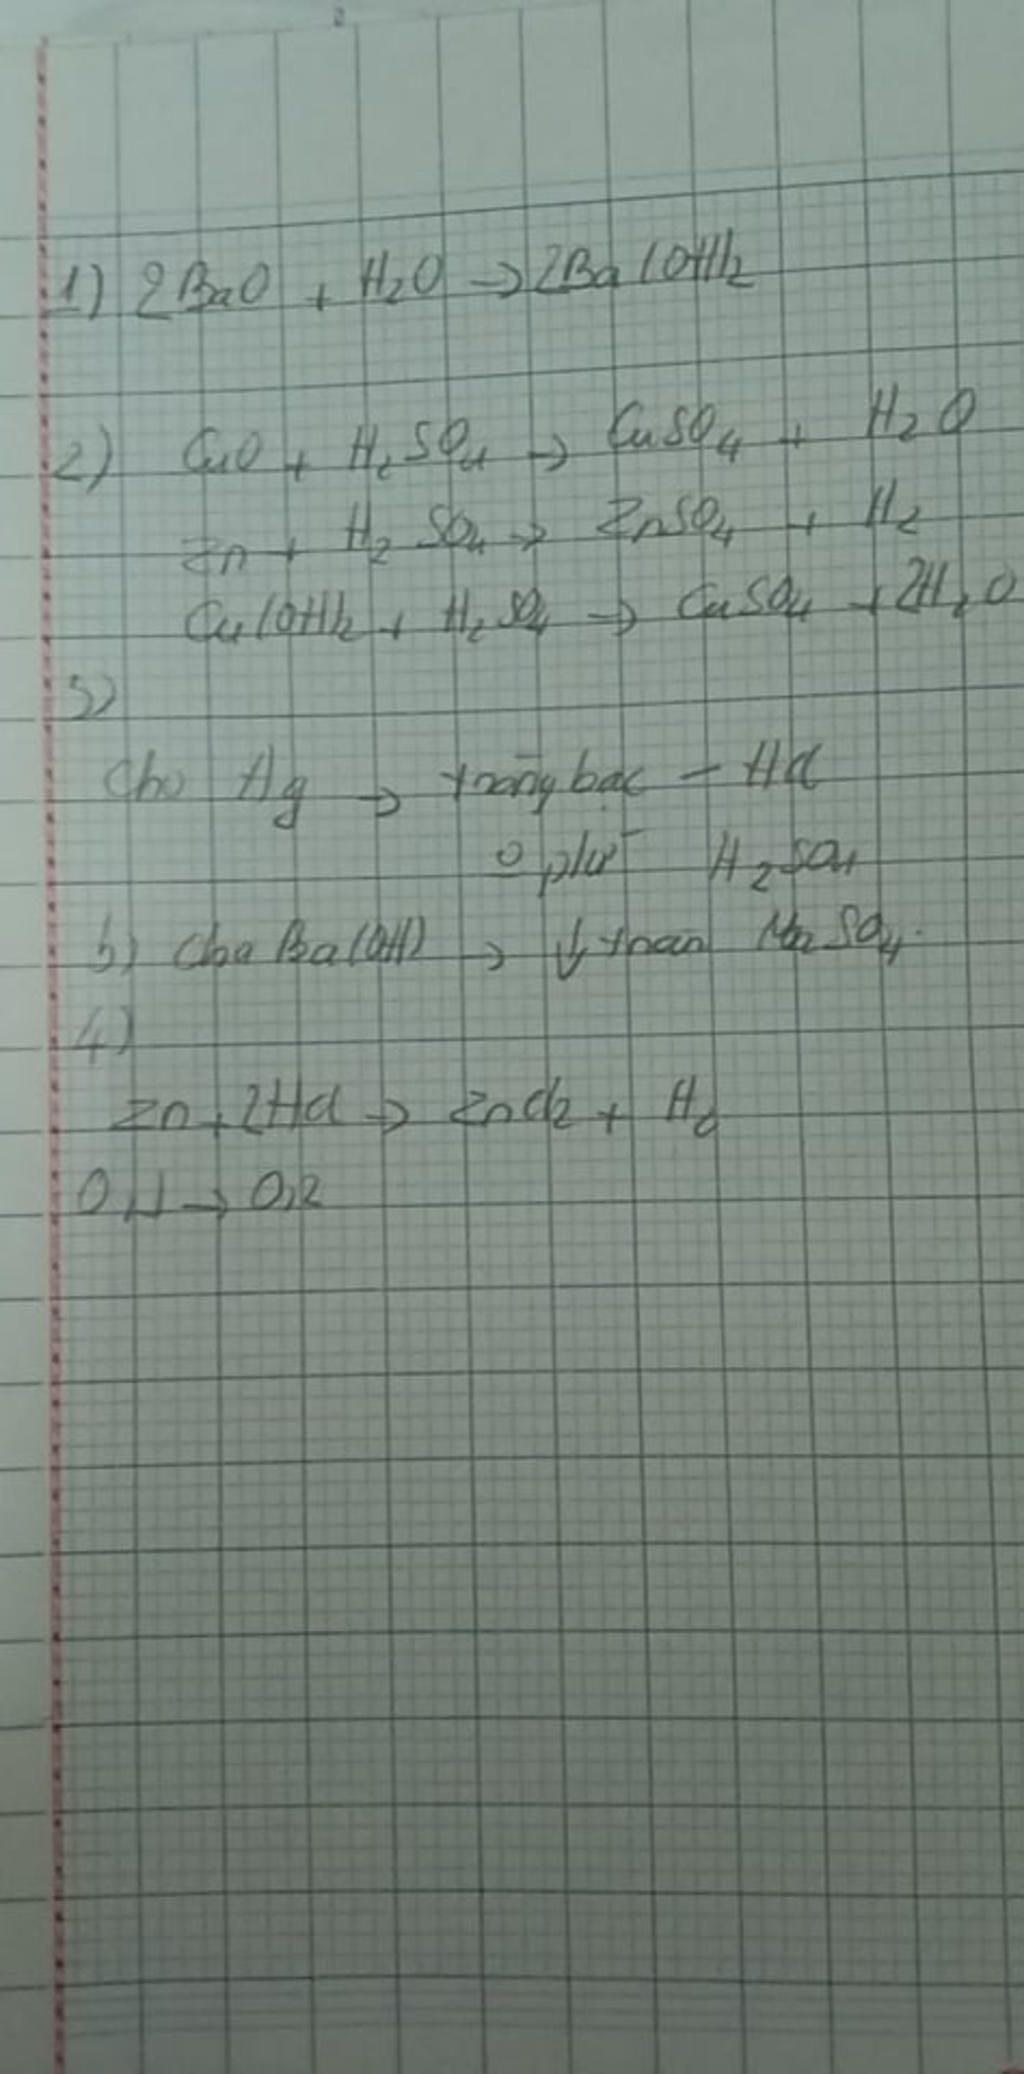 1) 2BaO + H2O → 2Ba(OH)2
2) CuO + H2SO4 → CuSO4 + H2O
Zn + H2SO4 → ZnSO4 + H2
Cu(OH)2 + H2SO4 → CuSO4 + 2H2O
3)
Cho Ag → trắng bạc – HCl
o pư H2SO4
b) Cho Ba(OH) → ↓ Na2SO4.
4)
Zn + 2HCl → ZnCl2 + H2
0,1 → 0,2